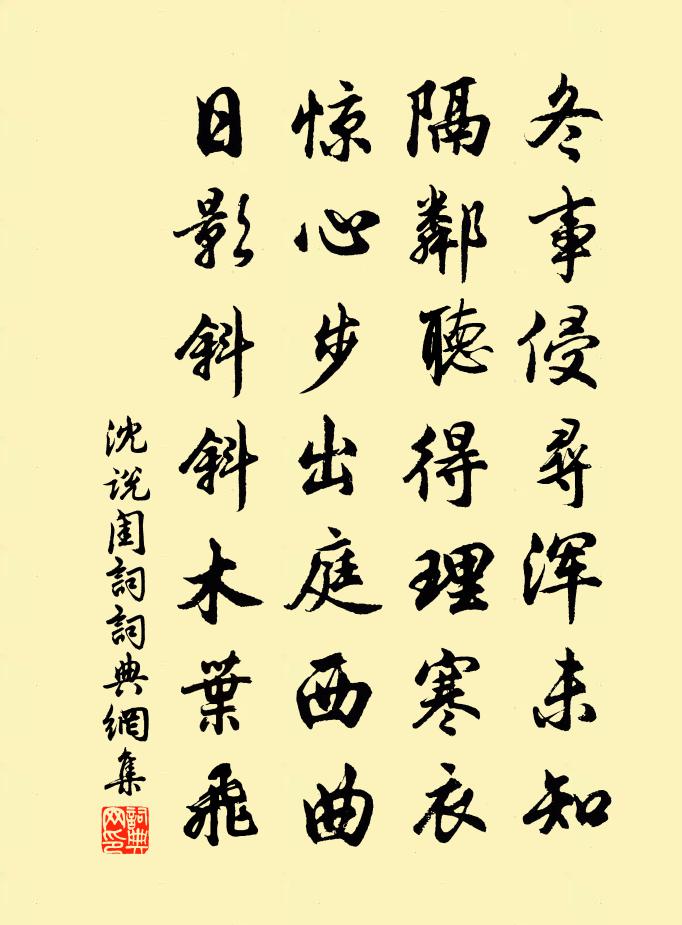 冬事侵尋浑未知
隔鄰聽得理寒衣
惊心步出庭西曲
日影斜斜木葉飛
沈说闺詞詞典網集
詞典网印